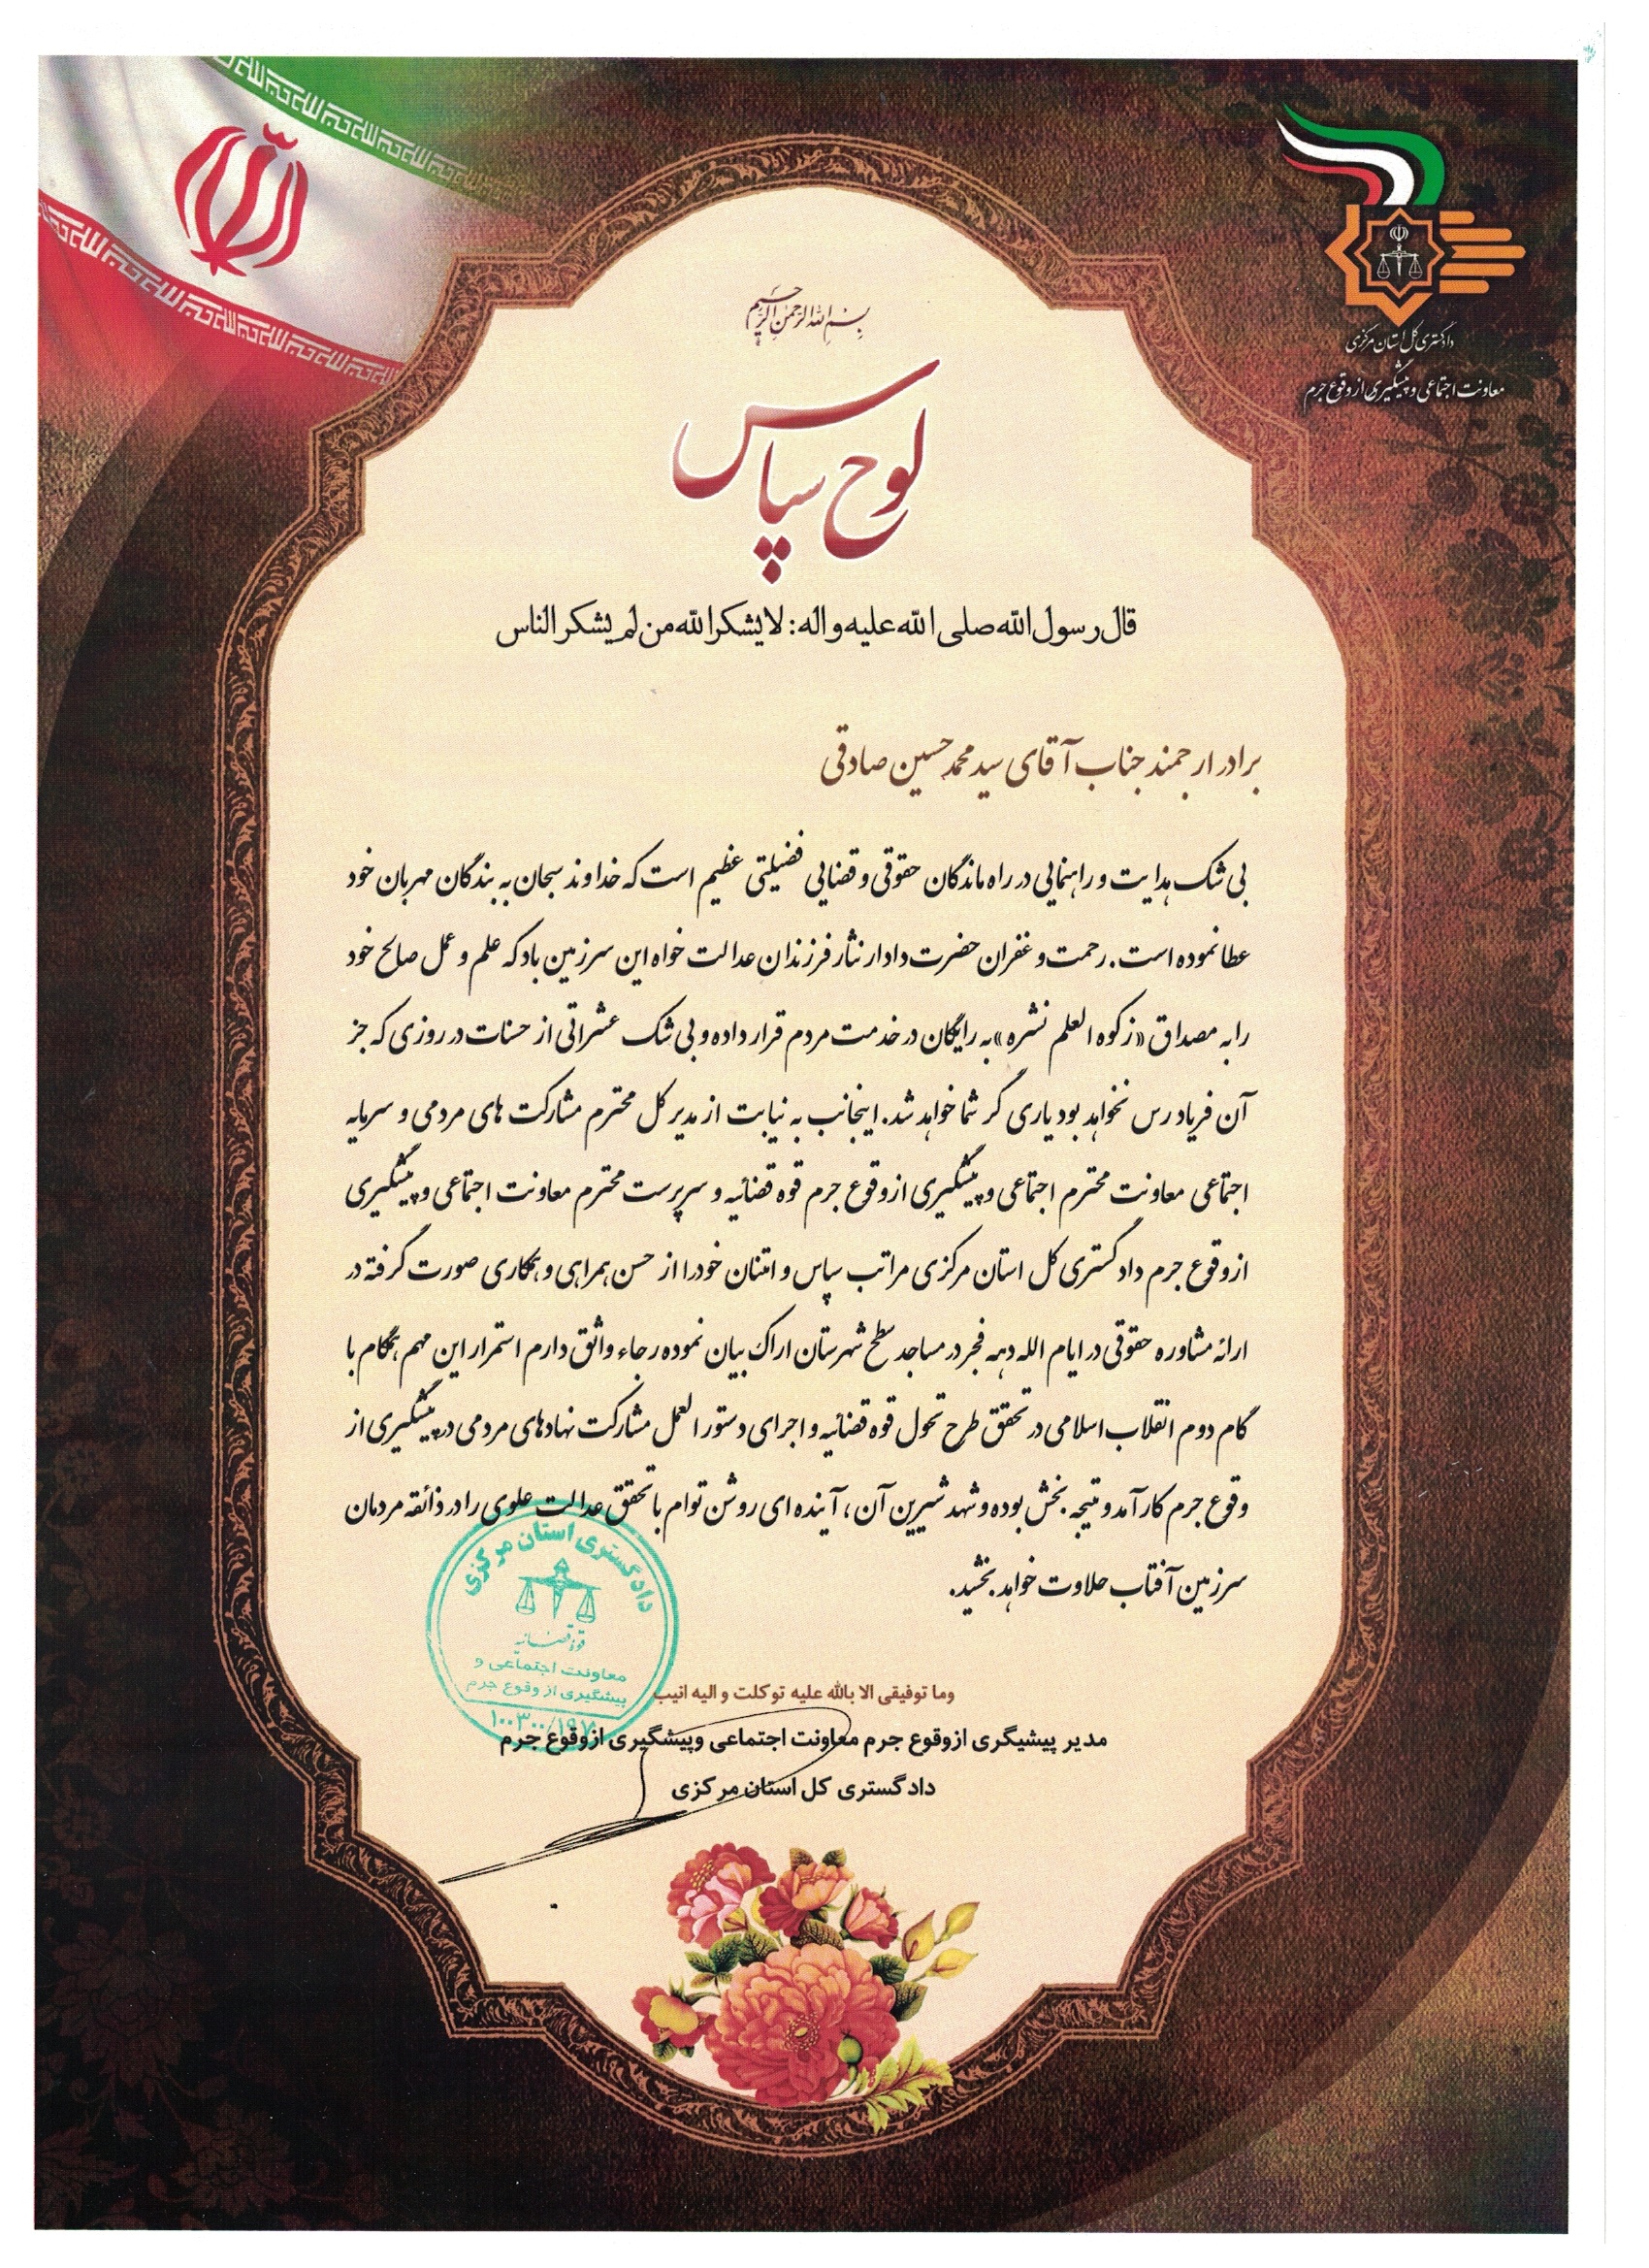 دادگستری کل استان مرکزی
معاونت اجتماعی و پیشگیری از وقوع جرم
بسم الله الرحمن الرحیم
لوح سپاس
قال رسول الله صلی الله علیه و اله: لا یشکر الله من لم یشکر الناس
برادر ارجمند جناب آقای سید محمد حسین صادقی
بی شک هدایت و راهنمایی در راه ماندگان حقوقی و قضایی فضیلتی عظیم است که خداوند سبحان به بندگان مهربان خود
عطا نموده است. رحمت و غفران حضرت دادار نثار فرزندان عدالت خواه این سرزمین باد که علم و عمل صالح خود
را به مصداق «زکوه العلم نشره» به رایگان در خدمت مردم قرار داده و بی شک عشراتی از حسنات در روزی که جز
آن فریاد رس نخواهد بود یاری گر شما خواهد شد. اینجانب به نیابت از مدیر کل محترم مشارکت های مردمی و سرمایه
اجتماعی معاونت محترم اجتماعی و پیشگیری از وقوع جرم قوه قضائیه و سرپرست محترم معاونت اجتماعی و پیشگیری
از وقوع جرم دادگستری کل استان مرکزی مراتب سپاس و امتنان خود را از حسن همراهی و همکاری صورت گرفته در
ارائه مشاوره حقوقی در ایام الله دهه فجر در مساجد سطح شهرستان اراک بیان نموده رجاء واثق دارم استمرار این مهم همگام با
گام دوم انقلاب اسلامی در تحقق طرح تحول قوه قضائیه و اجرای دستور العمل مشارکت نهادهای مردمی در پیشگیری از
وقوع جرم کارآمد و نتیجه بخش بوده و شهد شیرین آن، آینده ای روشن توام با تحقق عدالت علوی را در ذائقه مردمان
سرزمین آفتاب حلاوت خواهد بخشید.
دادگستری استان مرکزی
قوه قضائیه
معاونت اجتماعی و
پیشگیری از وقوع جرم
۱۰۰۳۰۰/۱۹۷
وما توفیقی الا بالله علیه توکلت و الیه انیب
مدیر پیشیگری از وقوع جرم معاونت اجتماعی وپیشگیری ازوقوع جرم
دادگستری کل استان مرکزی